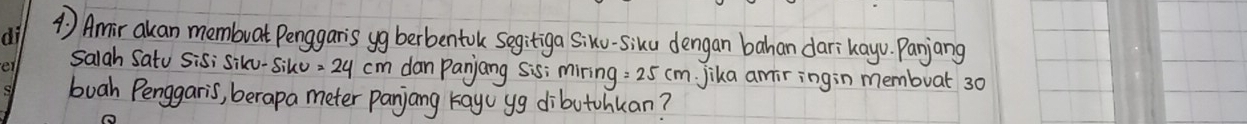 4.) Amir akan membuat Penggaris yg berbentuk segitiga siku-siku dengan bahan dari kayu. Panjang
salah satu sisi siku-siku = 24 cm dan panjang sisi miring = 25 cm. jika amir ingin membuat 30
buah Penggaris, berapa meter panjang kayu yg dibutuhkan?